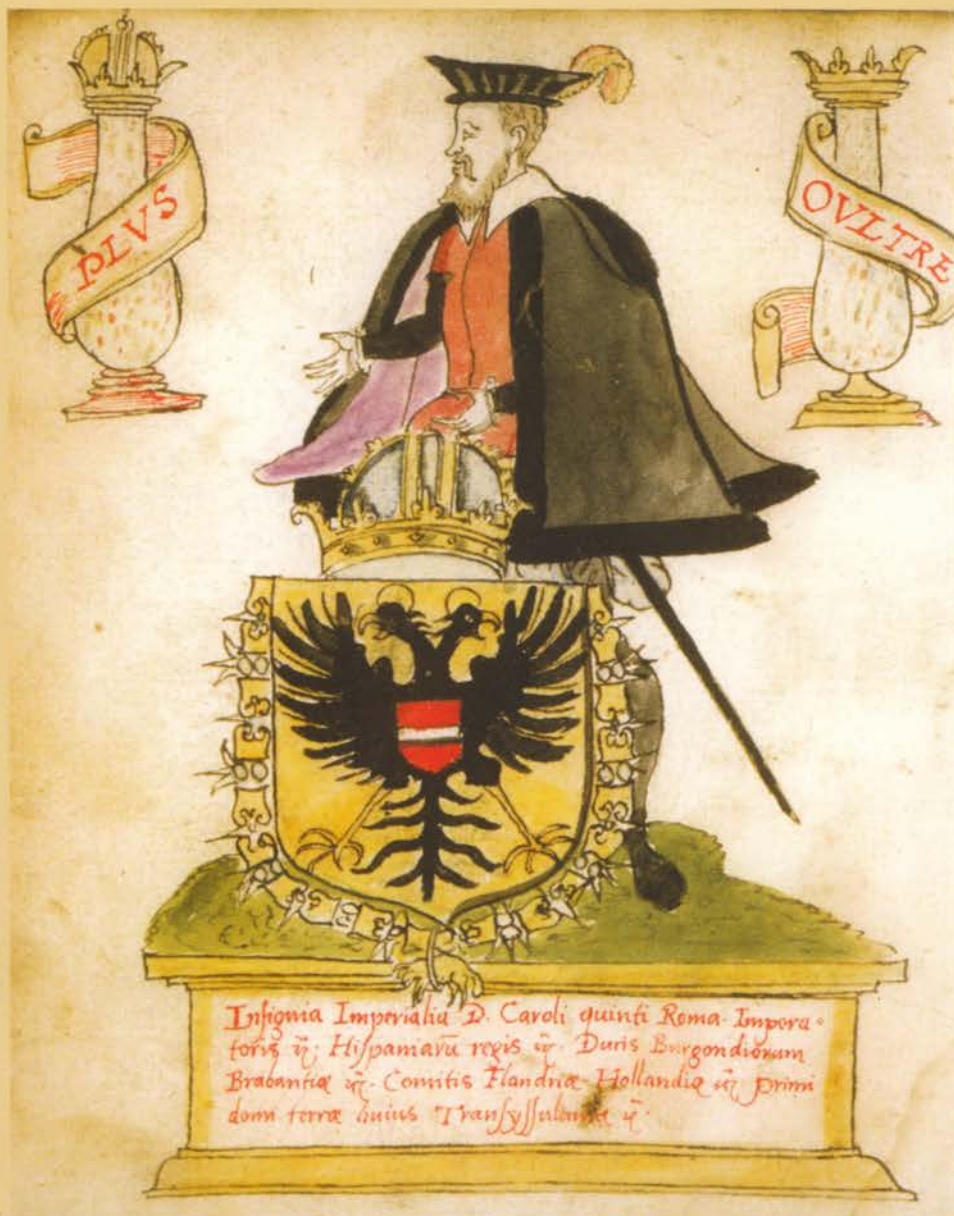 PLVS
OVLTRE
Insignia Imperialia D. Caroli quinti Roma. Impera-
toris ꝛc̄; Hispaniarū regis ꝛc̄. Ducis Burgondiorum
Brabantiæ ꝛc̄. Comitis Flandriæ Hollandiæ ꝛc̄; primi
domi terræ huius Transysulaniæ ꝛc̄.